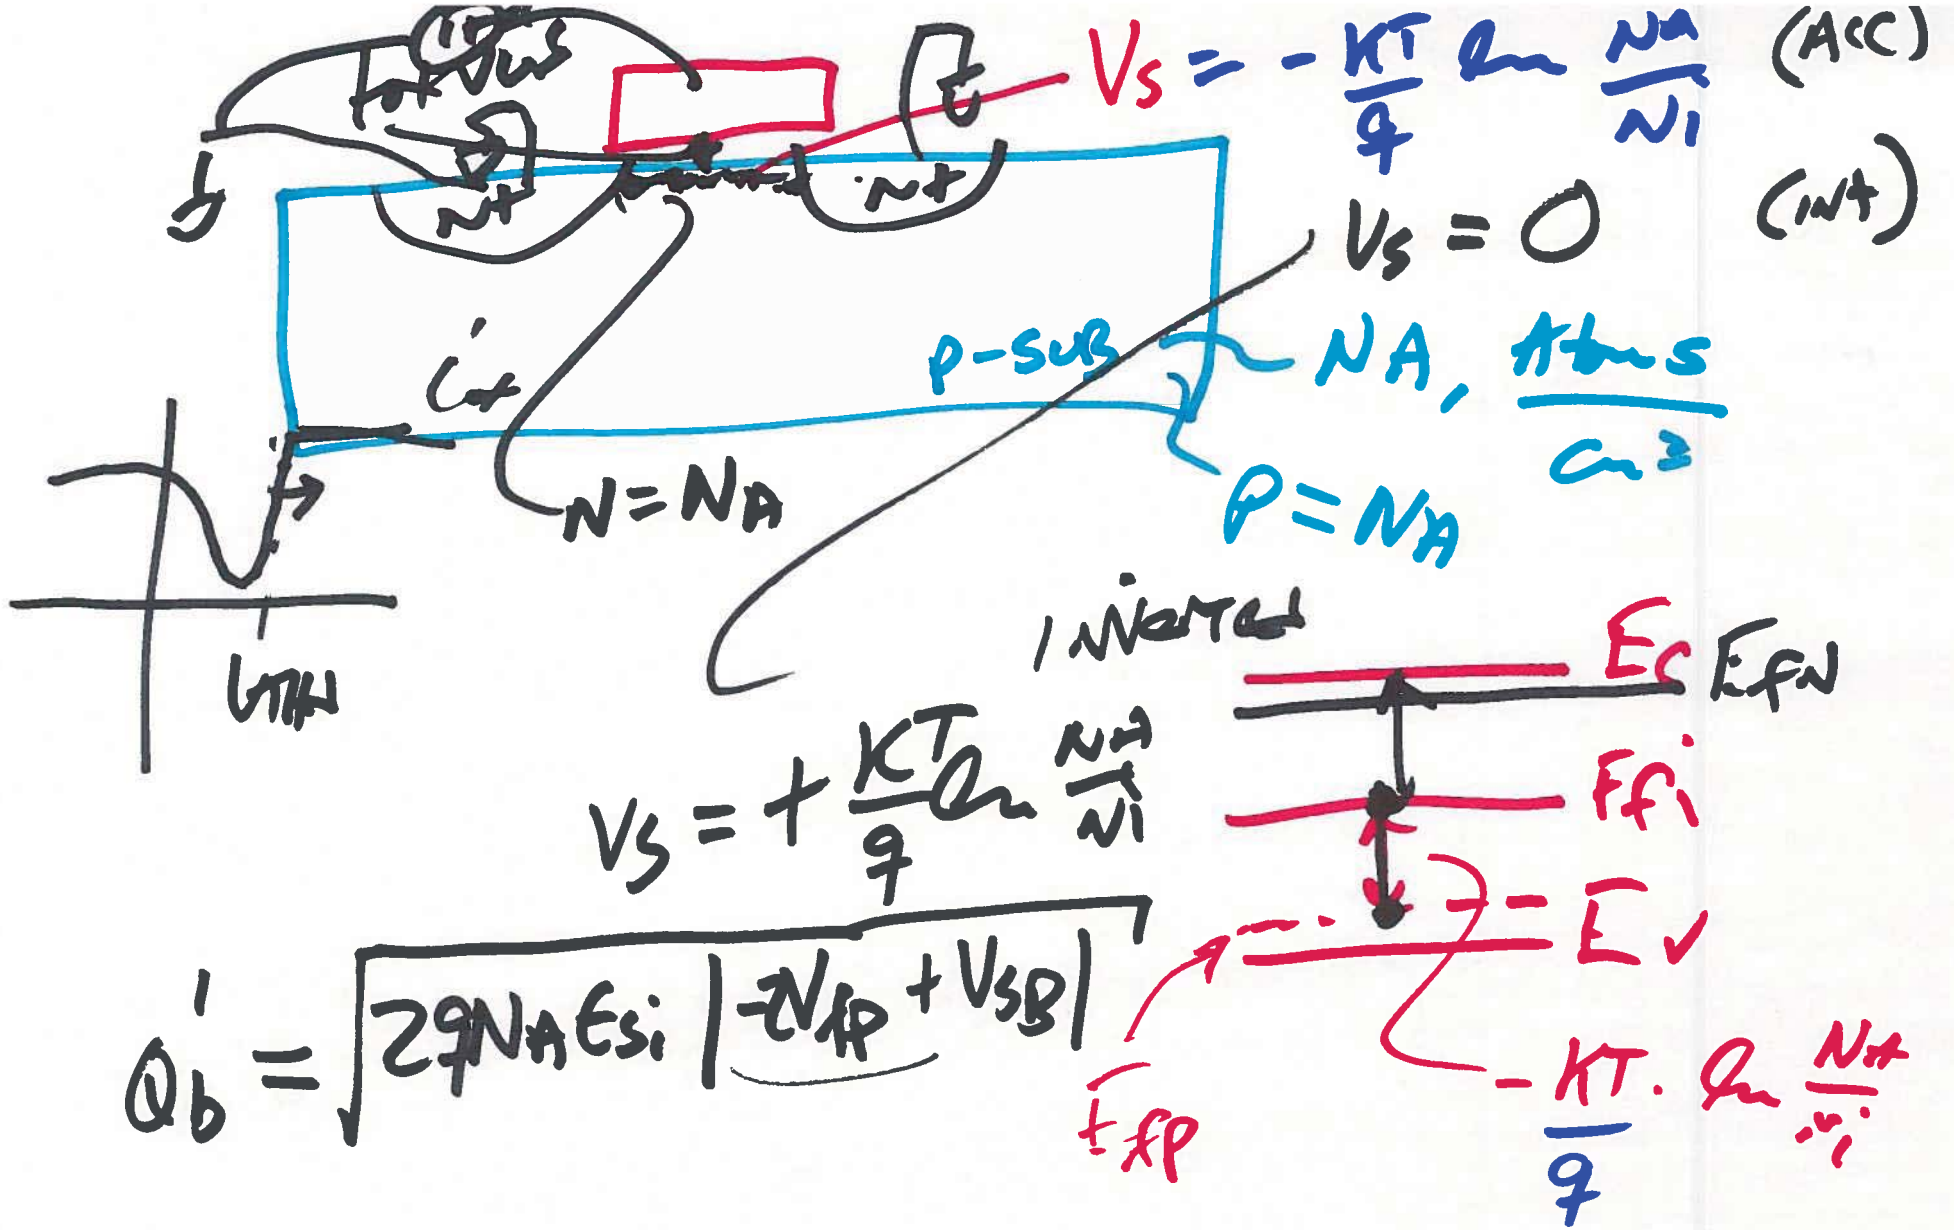 For VGS
Vs = - KT/q ln NA/Ni (Acc)
Vs = 0 (Int)
N+
N+
P-SUB
NA, Atoms/cm³
Cox'
N = NA
P = NA
VTHN
Inverted
Ec
Efn
Efi
Ev
Efp
Vs = + KT/q ln NA/Ni
Q'b = √2qNAEsi |-2Vfp + VSB|
- KT/q · ln NA/ni